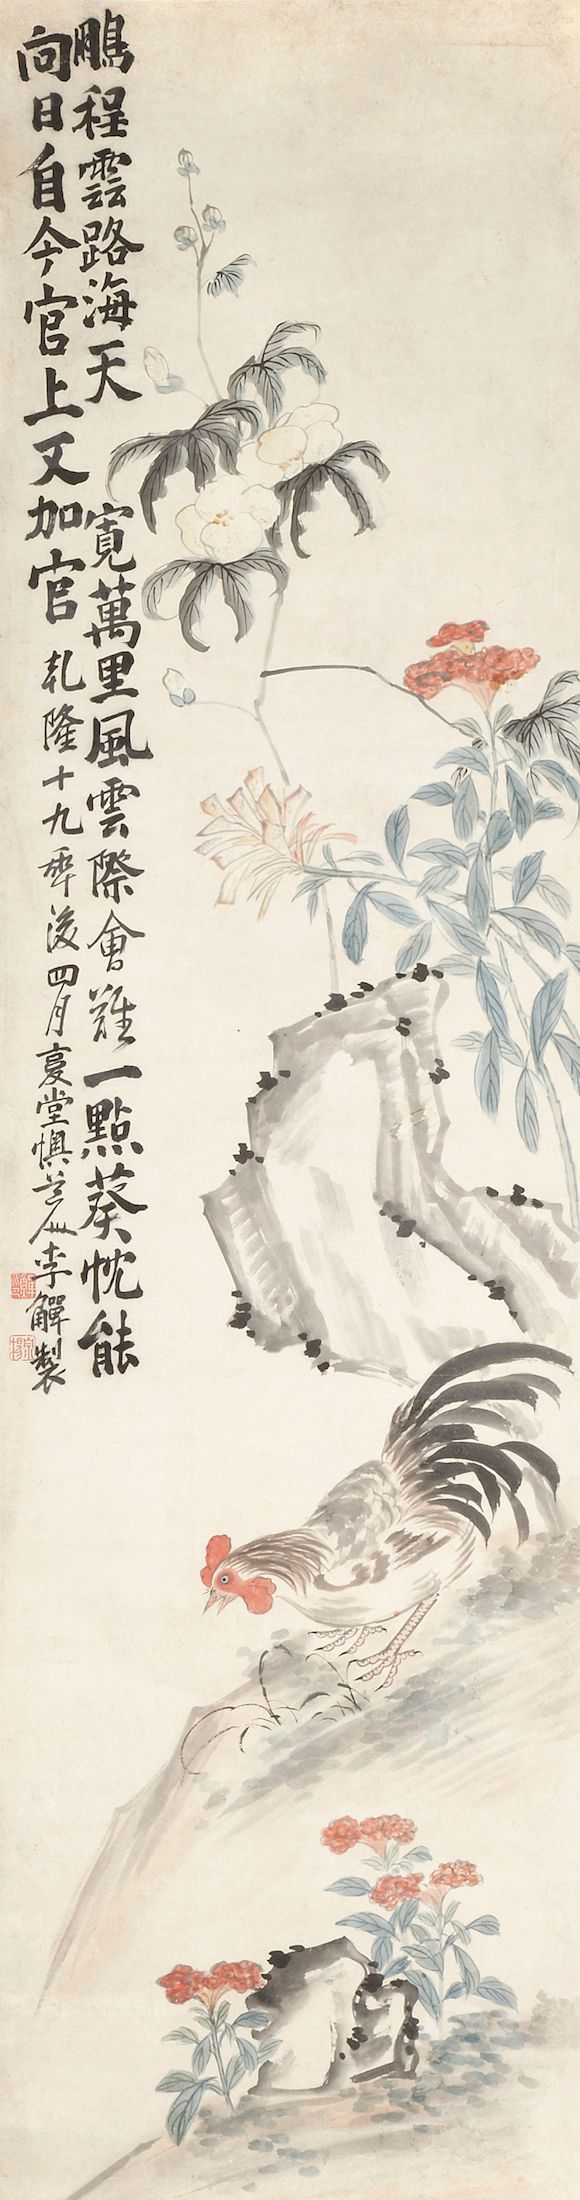 鵬程雲路海天寬萬里風雲際會難一點葵忱能
向日自今官上又加官乾隆十九年後四月复堂懊道人李觶製
宗揚